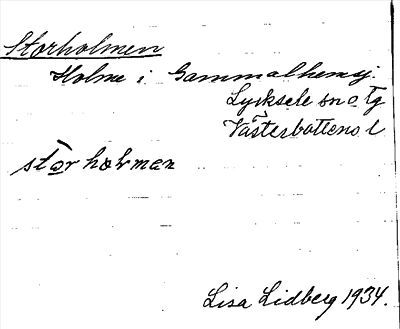 Storholmen
Holme i Gammalhemsj.
Lycksele sn o Tg
Västerbottens l
stor holmen
Lisa Lidberg 1934.